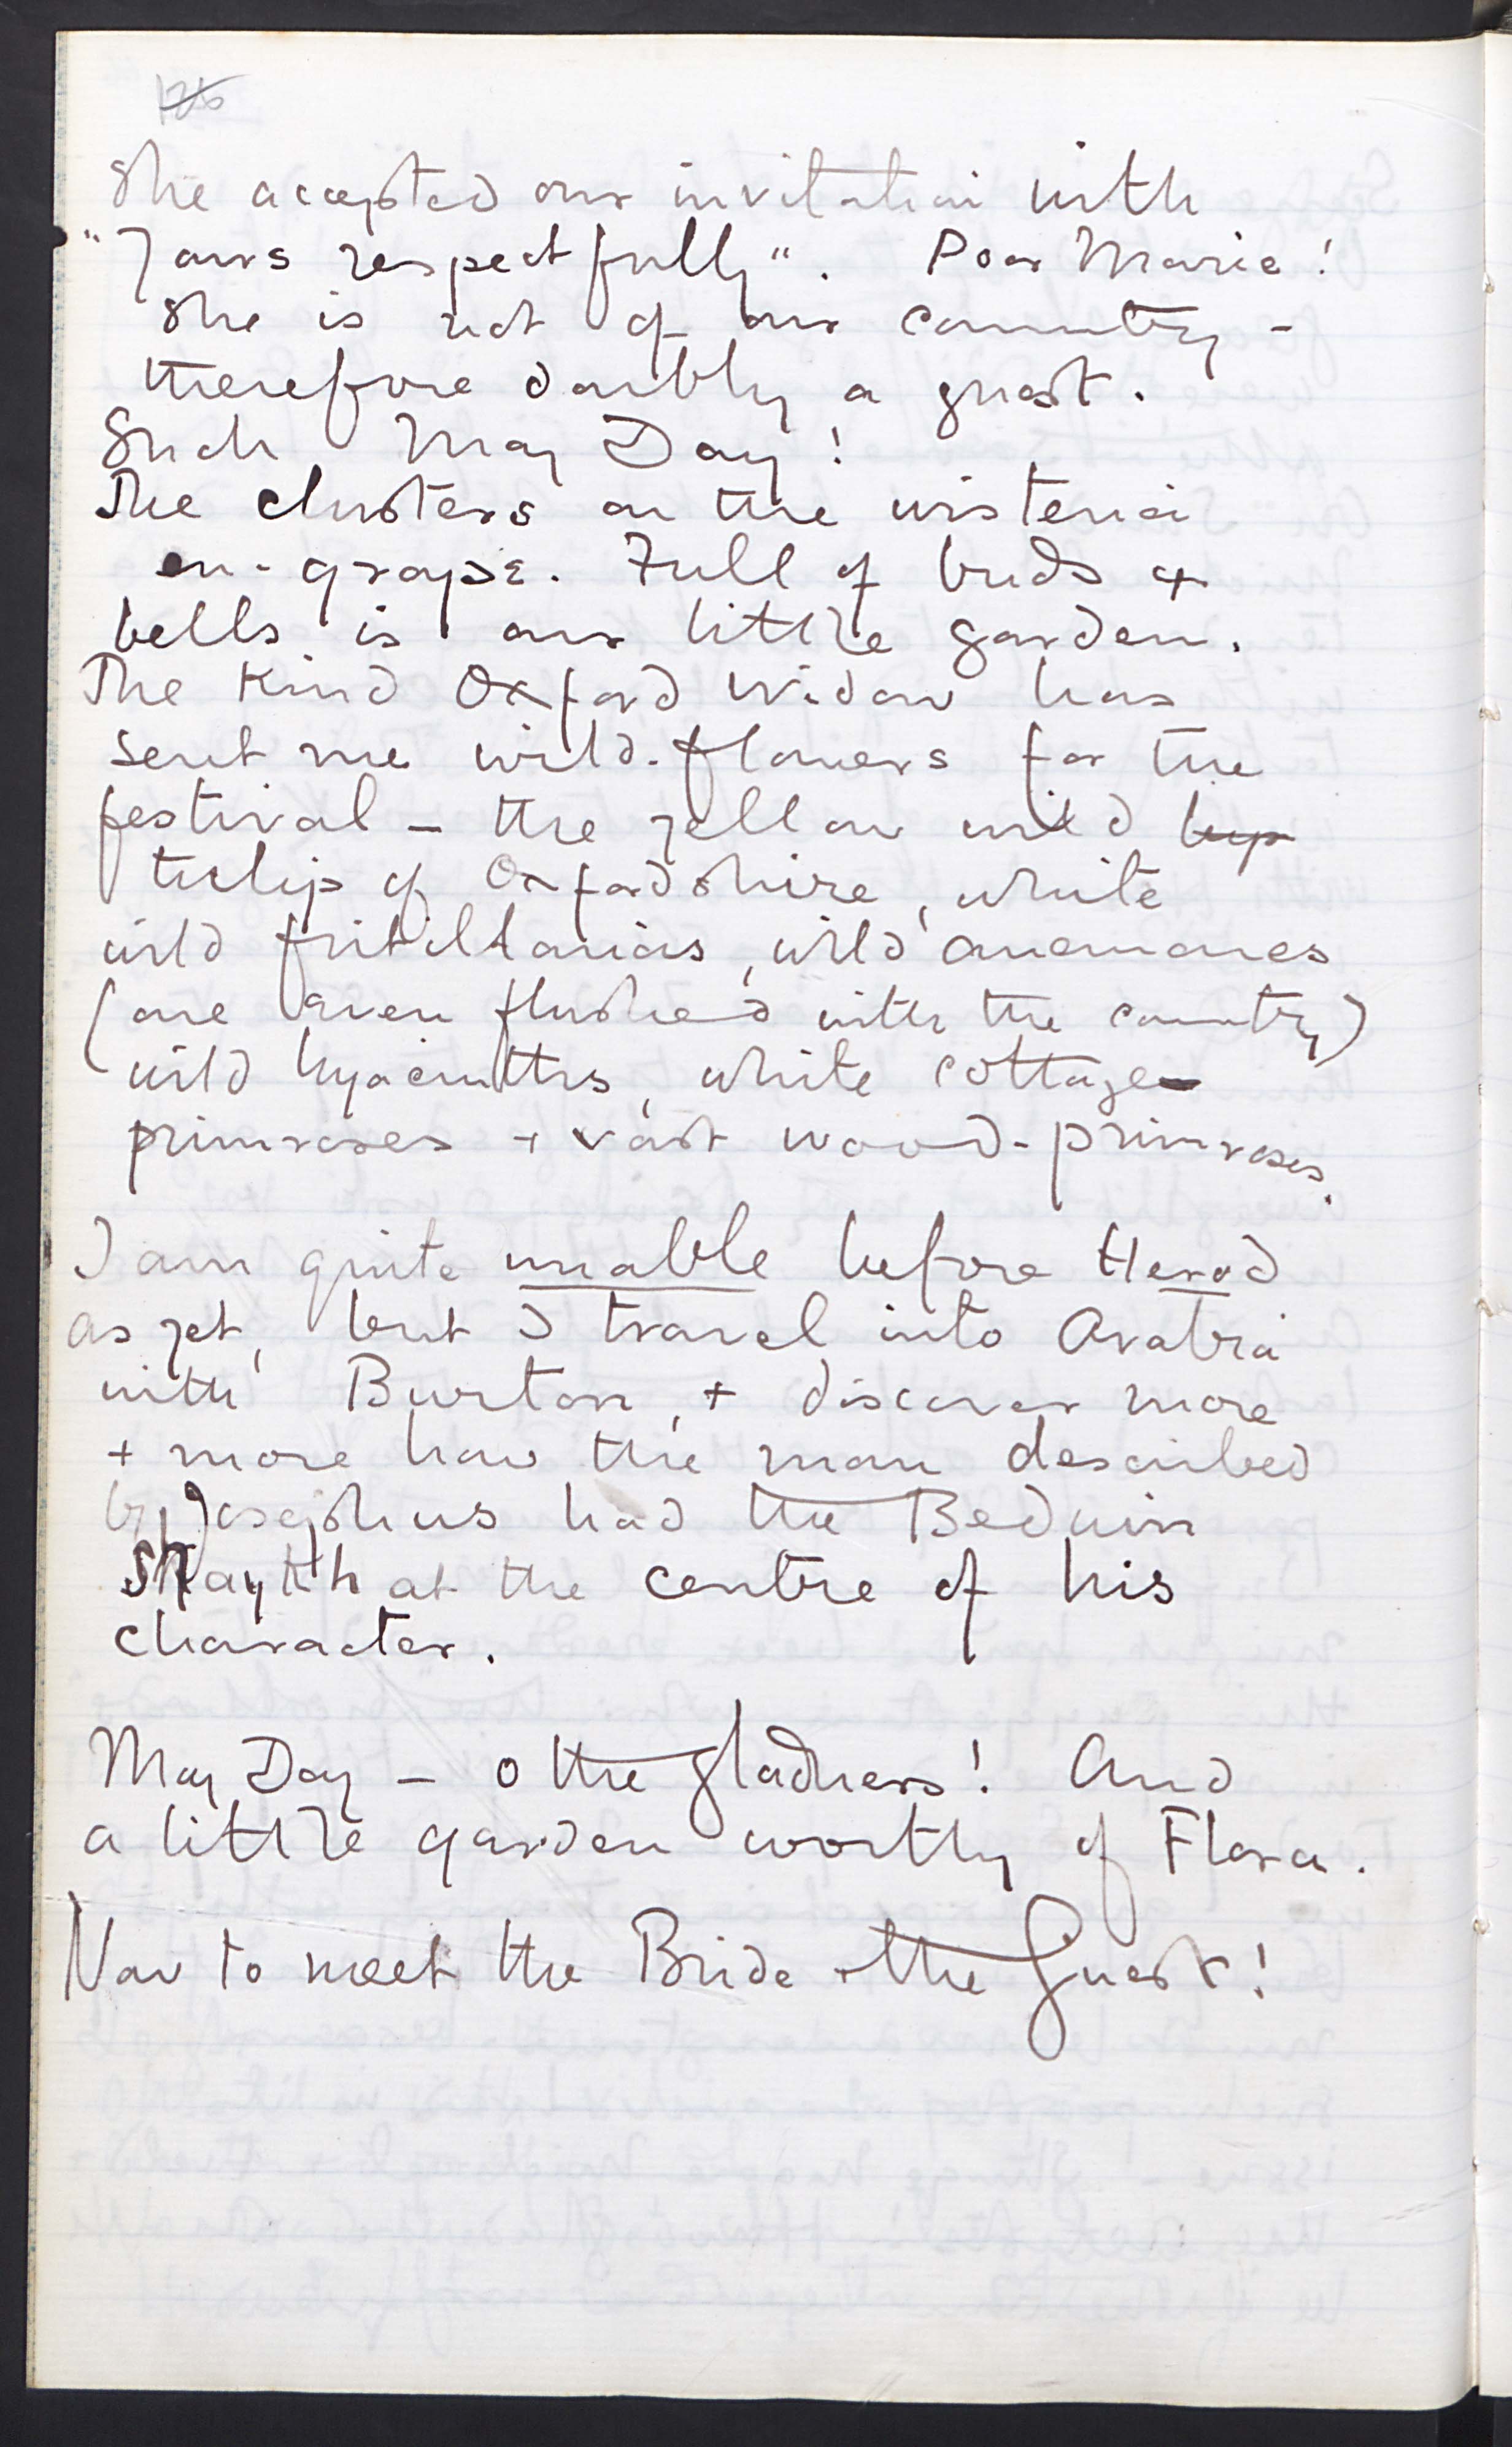 She accepted our invitation with
"Yours respectfully". Poor Marie!
She is not of our country -
therefore doubly a guest.
Such May Day!
The clusters on the wisteria
en-grape. Full of buds &
bells is our little garden.
The kind Oxford widow has
sent me wild-flowers for the
festival - the yellow wild
tulip of Oxfordshire, white
wild fritillarias, wild anemones
(one even flushed with the country)
wild hyacinths, white cottage
primroses + vast wood-primroses.
I am quite unable before Herod
as yet, but I travel into Arabia
with Burton, + discover more
+ more how the man described
by Josephus had the Beduin
Shaykh at the centre of his
character.
May Day - O the gladness! And
a little garden worthy of Flora.
Now to meet the Bride + the Guest!